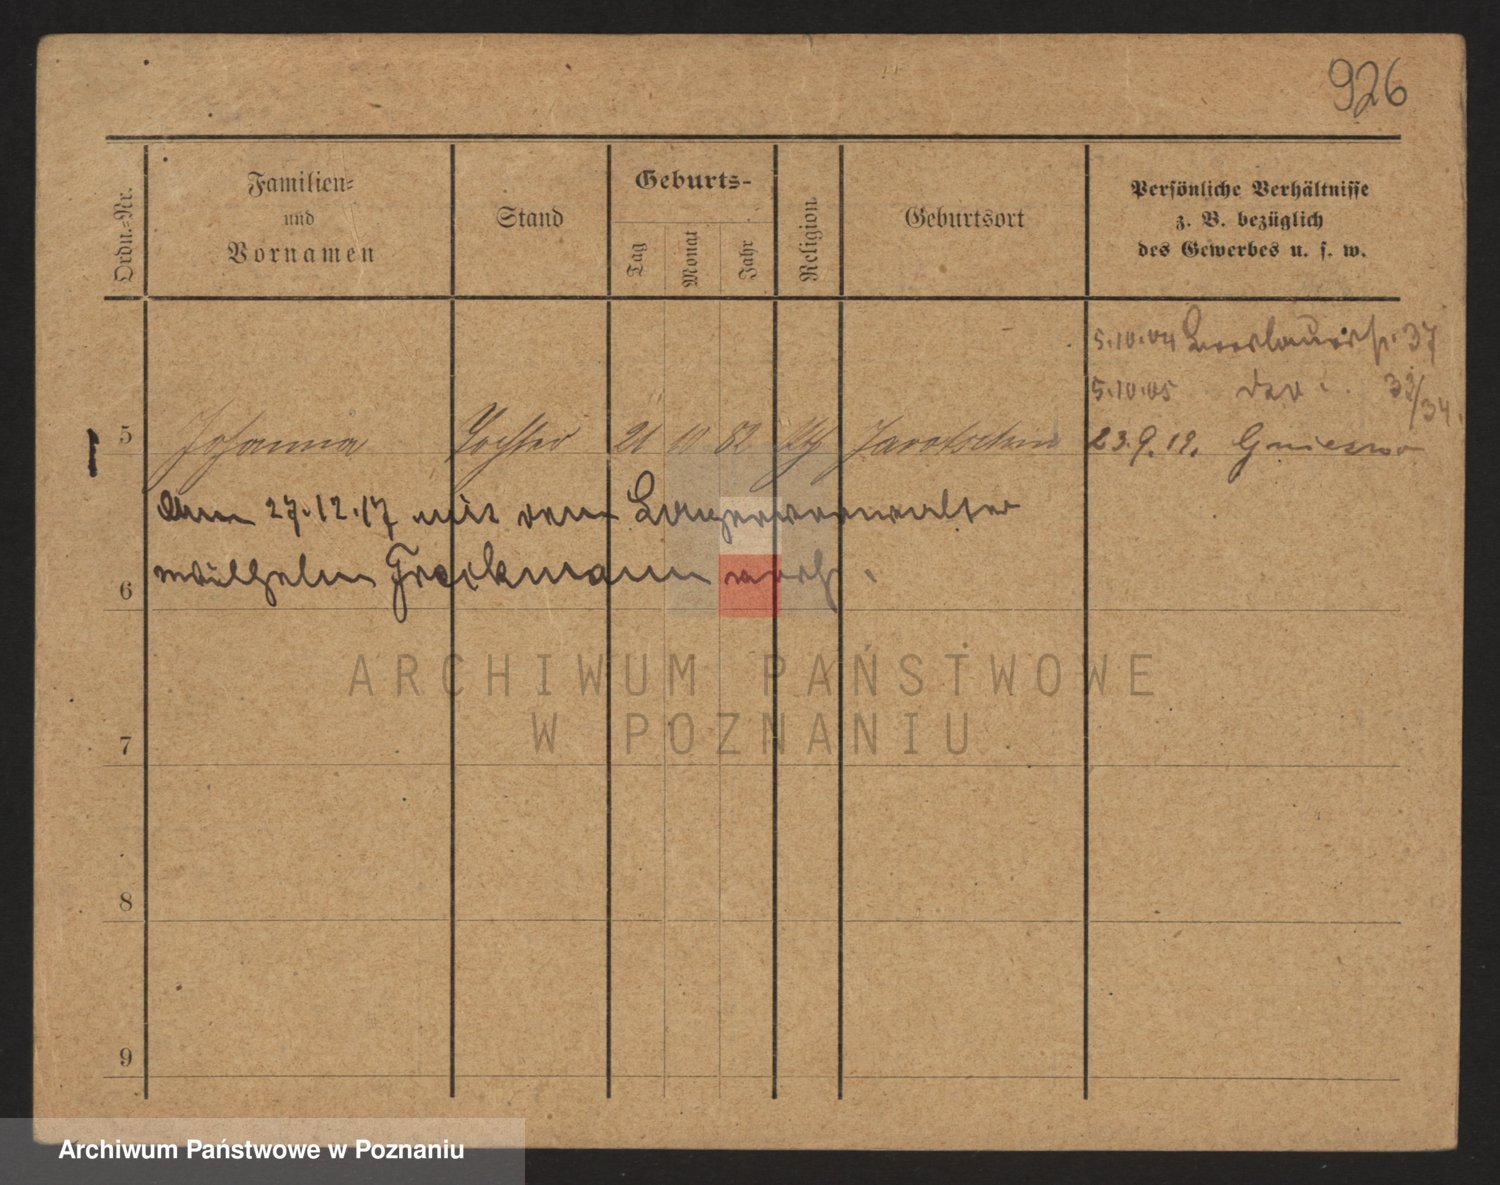 926
Ordn.-Nr.
Familien-
und
Vornamen
Stand
Geburts-
Tag
Monat
Jahr
Religion
Geburtsort
Persönliche Verhältnisse
z. B. bezüglich
des Gewerbes u. s. w.
5.10.04 37
5.10.05 33/34
5 Johanna Tochter 21 10 82 Jarotschin 23.9.19. Gniesno
Am 27.12.17 mit dem Lagerverwalter
6 Wilhelm Freckmann verh.
7
8
9
ARCHIWUM PAŃSTWOWE
W POZNANIU
Archiwum Państwowe w Poznaniu